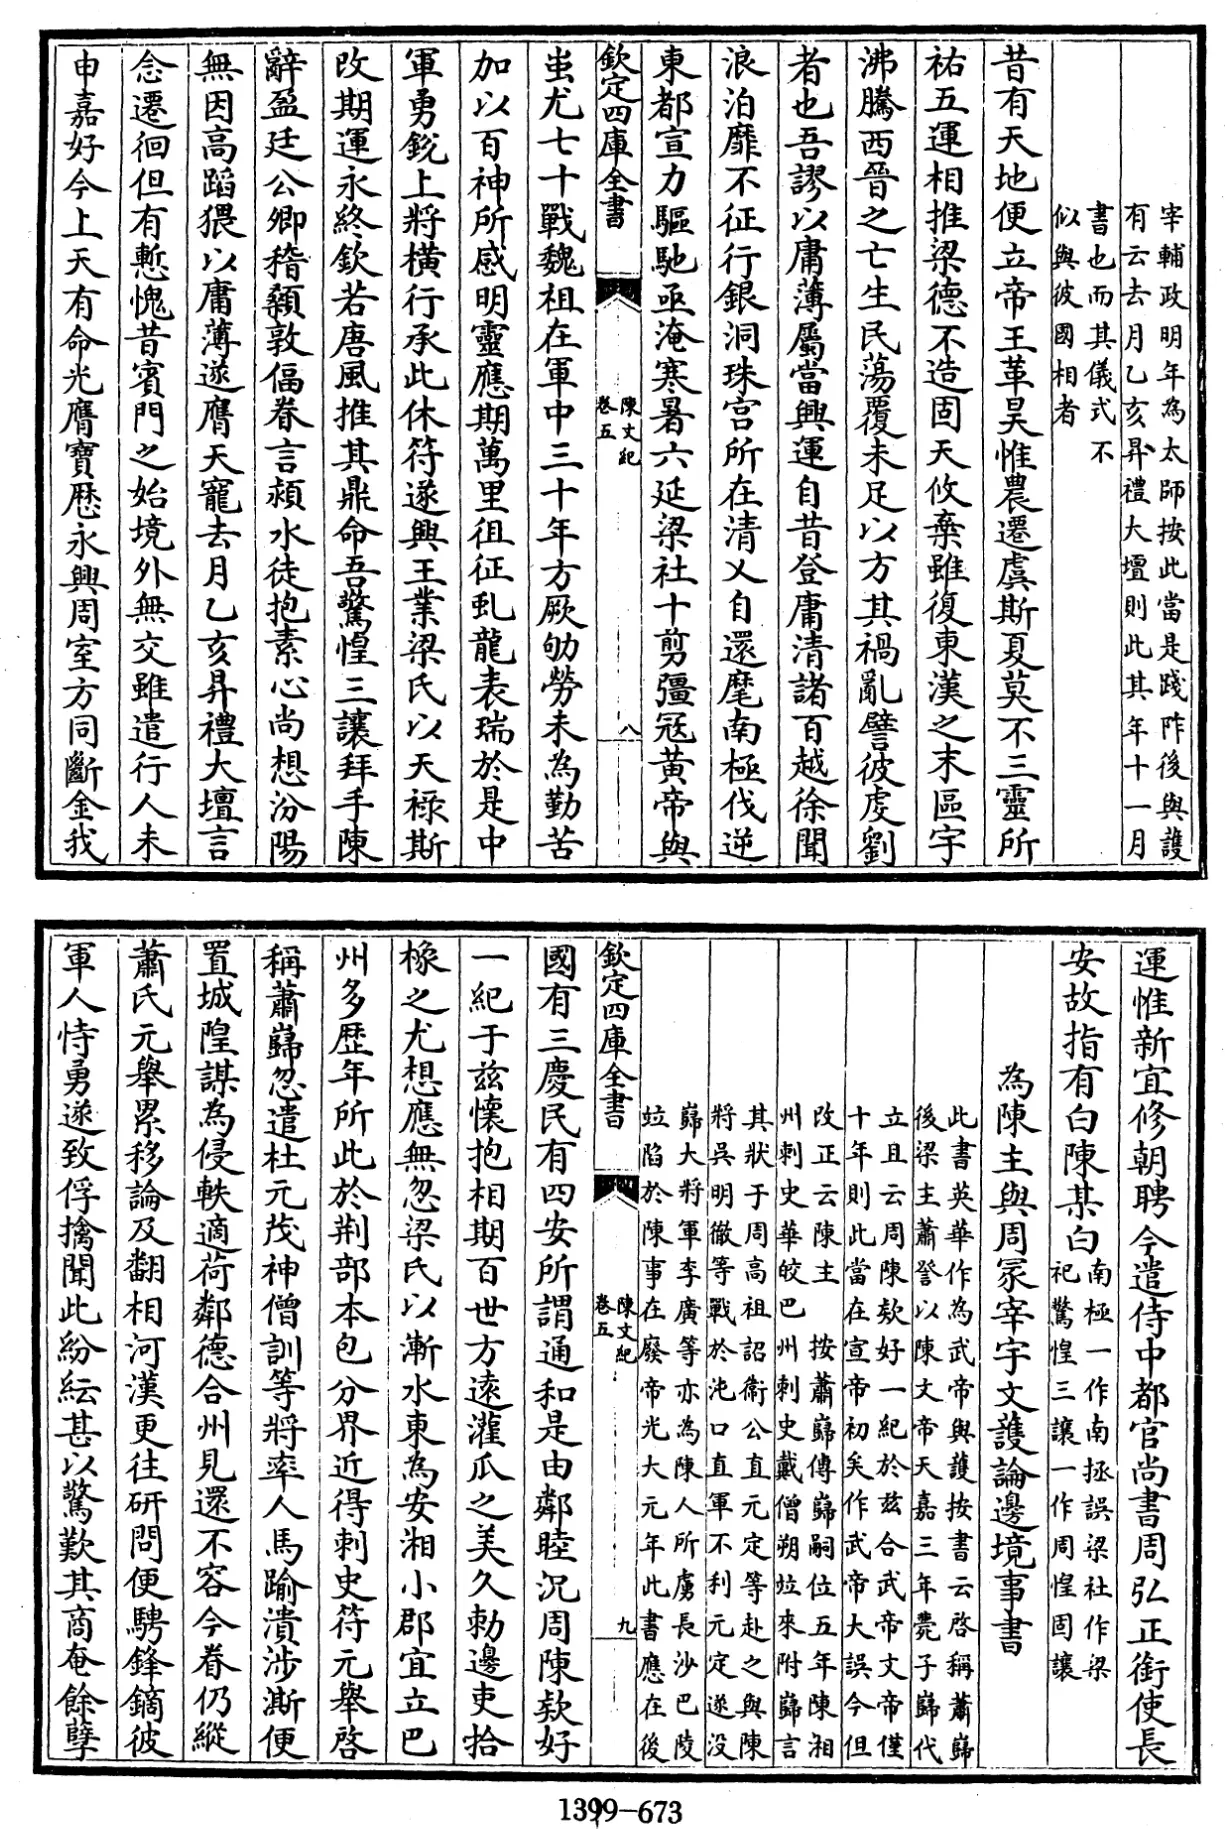 宰輔政明年為太師按此當是踐阼後與護
有云去月乙亥昇禮大壇則此其年十一月
書也而其儀式不
似與彼國相者
昔有天地便立帝王革昊惟農遷虞斯夏莫不三靈所
祐五運相推梁德不造固天攸棄雖復東漢之末區宇
沸騰西晉之亡生民蕩覆未足以方其禍亂譬彼虔劉
者也吾謬以庸薄屬當興運自昔登庸清諸百越徐聞
浪泊靡不征行銀洞珠宮所在清乂自還麾南極伐逆
東都宣力驅馳亟淹寒暑六延梁社十剪彊冦黃帝與
欽定四庫全書
陳文紀
卷五
八
蚩尤七十戰魏祖在軍中三十年方厥劬勞未為勤苦
加以百神所感明靈應期萬里徂征虬龍表瑞於是中
軍勇銳上將橫行承此休符遂興王業梁氏以天祿斯
改期運永終欽若唐風推其鼎命吾驚惶三讓拜手陳
辭盈廷公卿稽顙敦偪眷言潁水徒抱素心尚想汾陽
無因高蹈猥以庸薄遂膺天寵去月乙亥昇禮大壇言
念遷徊但有慙愧昔賓門之始境外無交雖遣行人未
申嘉好今上天有命光膺寶歷永興周室方同斷金我
運惟新宜修朝聘今遣侍中都官尚書周弘正銜使長
安故指有白陳某白
南極一作南拯誤梁社作梁
祀驚惶三讓一作周惶固讓
為陳主與周冢宰宇文護論邊境事書
此書英華作為武帝與護按書云啓稱蕭巋
後梁主蕭詧以陳文帝天嘉三年薨子巋代
立且云周陳欵好一紀於茲合武帝文帝僅
十年則此當在宣帝初矣作武帝大誤今但
改正云陳主 按蕭巋傳巋嗣位五年陳湘
州刺史華皎巴州刺史戴僧朔竝來附巋言
其狀于周高祖詔衞公直元定等赴之與陳
將吳明徹等戰於沌口直軍不利元定遂没
巋大將軍李廣等亦為陳人所虜長沙巴陵
竝陷於陳事在廢帝光大元年此書應在後
欽定四庫全書
陳文紀
卷五
九
國有三慶民有四安所謂通和是由鄰睦況周陳欵好
一紀于茲懷抱相期百世方遠灌瓜之美久勅邊吏拾
橡之尤想應無忽梁氏以漸水東為安湘小郡宜立巴
州多歷年所此於荆部本包分界近得刺史符元舉啓
稱蕭巋忽遣杜元茂神僧訓等將率人馬踰潰涉澌便
置城隍謀為侵軼適荷鄰德合州見還不容今眷仍縱
蕭氏元舉累移論及翻相河漢更往研問便騁鋒鏑彼
軍人恃勇遂致俘擒聞此紛紜甚以驚歎其商奄餘孽
1399-673